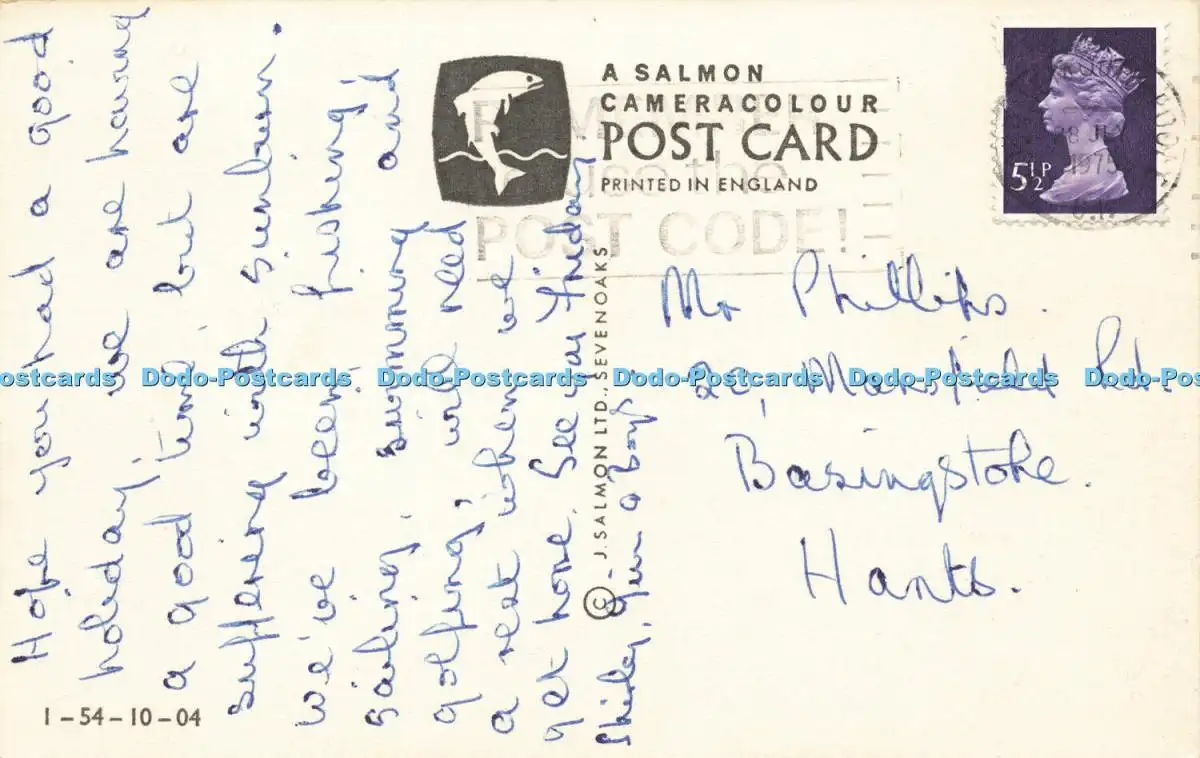 Hope you had a good
holiday, we are having
a good time, but are
suffering with sunburn.
We've been fishing,
sailing, swimming and
golfing, will need
a rest when we
get home. See you Friday.
Shirley, Jim & boys.
A SALMON
CAMERACOLOUR
POST CARD
PRINTED IN ENGLAND
REMEMBER
use the
POST CODE!
1975
5½P
© J. SALMON LTD., SEVENOAKS
Mr Phillips.
Mansfield Rd.
Basingstoke.
Hants.
1-54-10-04
ostcards Dodo-Postcards Dodo-Postcards Dodo-Postcards Dodo-Postcards Dodo-Post